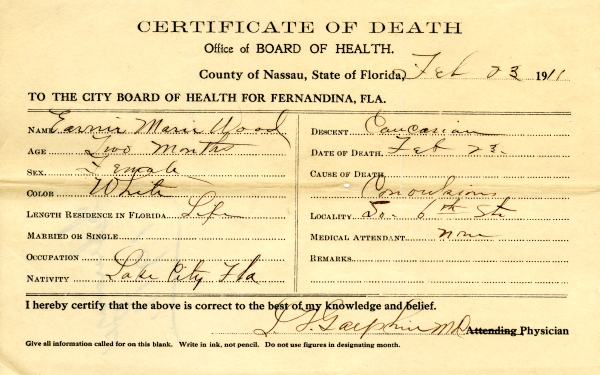 CERTIFICATE OF DEATH
Office of BOARD OF HEALTH.
County of Nassau, State of Florida, Feb 23 1911
TO THE CITY BOARD OF HEALTH FOR FERNANDINA, FLA.
NAME Marie Wood
AGE Two Months
SEX. Female
COLOR White
LENGTH RESIDENCE IN FLORIDA Life
MARRIED OR SINGLE
OCCUPATION
NATIVITY Lake City Fla
DESCENT Caucasian
DATE OF DEATH. Feb 23.
CAUSE OF DEATH
Convulsions
LOCALITY So. 6th St
MEDICAL ATTENDANT none
REMARKS
I hereby certify that the above is correct to the best of my knowledge and belief.
M.D. Attending Physician
Give all information called for on this blank. Write in ink, not pencil. Do not use figures in designating month.